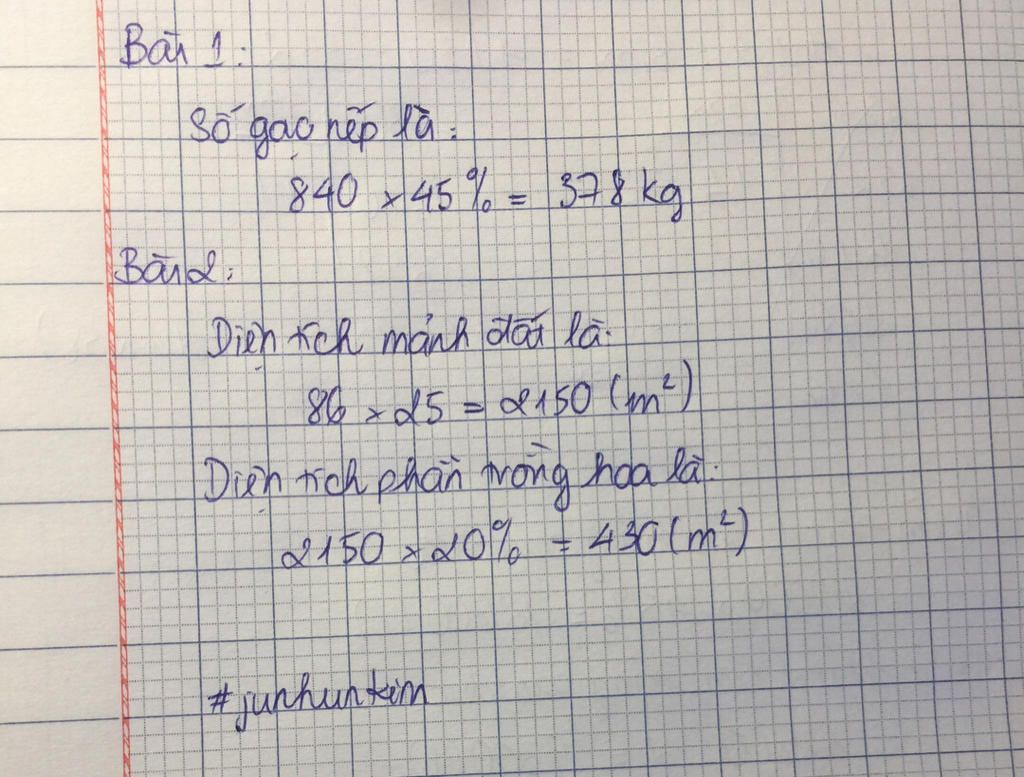 Bài 1:
Số gạo nếp là:
840 x 45% = 378 kg
Bài 2:
Diện tích mảnh đất là:
86 x 25 = 2150 (m²)
Diện tích phần trồng hoa là:
2150 x 20% = 430 (m²)
#junhunkim